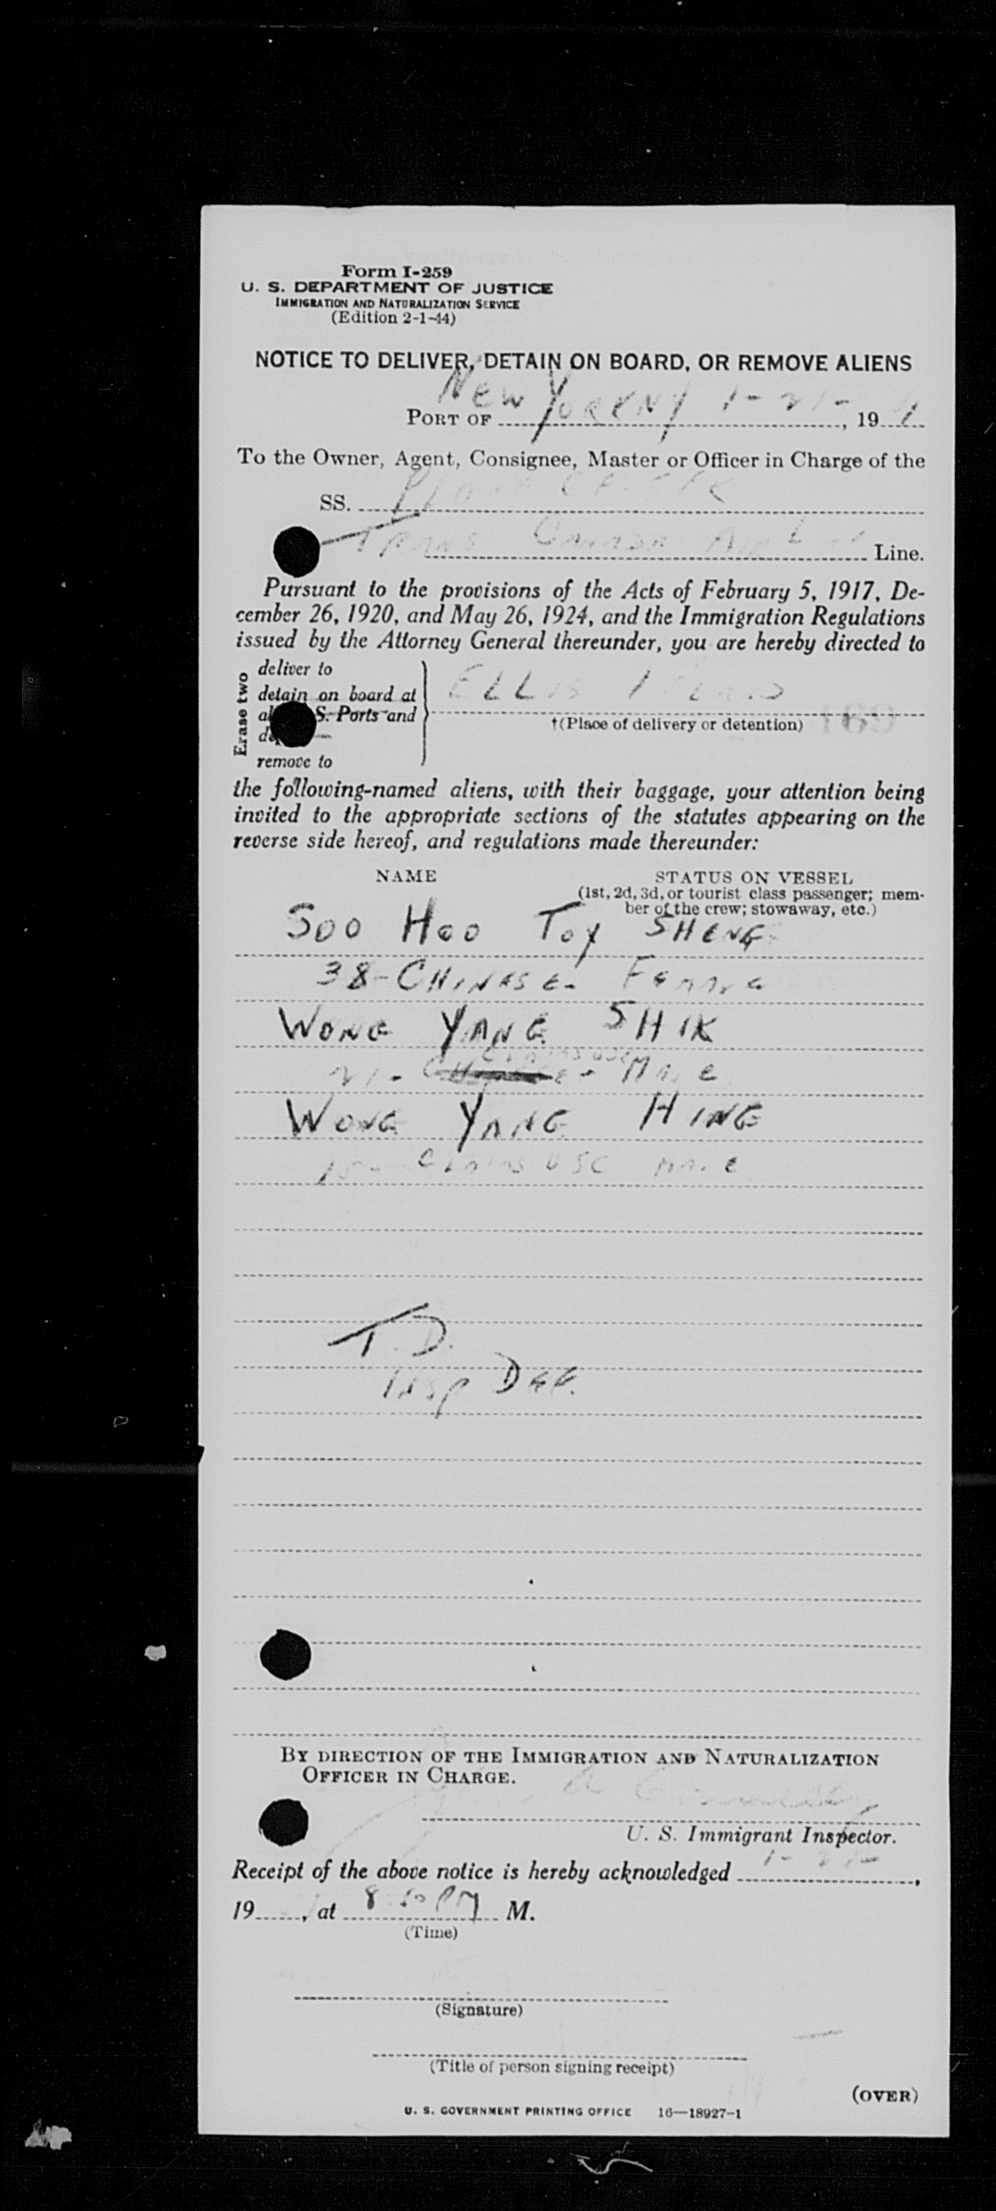 Form I-259
U. S. DEPARTMENT OF JUSTICE
IMMIGRATION AND NATURALIZATION SERVICE
(Edition 2-1-44)
NOTICE TO DELIVER, DETAIN ON BOARD, OR REMOVE ALIENS
PORT OF New York NY 1-21-, 19
To the Owner, Agent, Consignee, Master or Officer in Charge of the
SS.
Trans Canada Air Line.
Pursuant to the provisions of the Acts of February 5, 1917, De-
cember 26, 1920, and May 26, 1924, and the Immigration Regulations
issued by the Attorney General thereunder, you are hereby directed to
Erase two
deliver to
detain on board at
S. Ports and
remove to
ELLIS ISLAND
†(Place of delivery or detention)
the following-named aliens, with their baggage, your attention being
invited to the appropriate sections of the statutes appearing on the
reverse side hereof, and regulations made thereunder:
NAME STATUS ON VESSEL
(1st, 2d, 3d, or tourist class passenger; mem-
ber of the crew; stowaway, etc.)
SOO HOO TOY SHENG
38-CHINESE- FEMALE
WONG YANG SHIK
21- CLAIMS USC - MALE
WONG YANG HING
15- CLAIMS USC MALE
T.D.
INSP DEF.
BY DIRECTION OF THE IMMIGRATION AND NATURALIZATION
OFFICER IN CHARGE.
U. S. Immigrant Inspector.
Receipt of the above notice is hereby acknowledged 1-21-,
19, at PM M.
(Time)
(Signature)
(Title of person signing receipt)
(OVER)
U. S. GOVERNMENT PRINTING OFFICE 16—18927-1